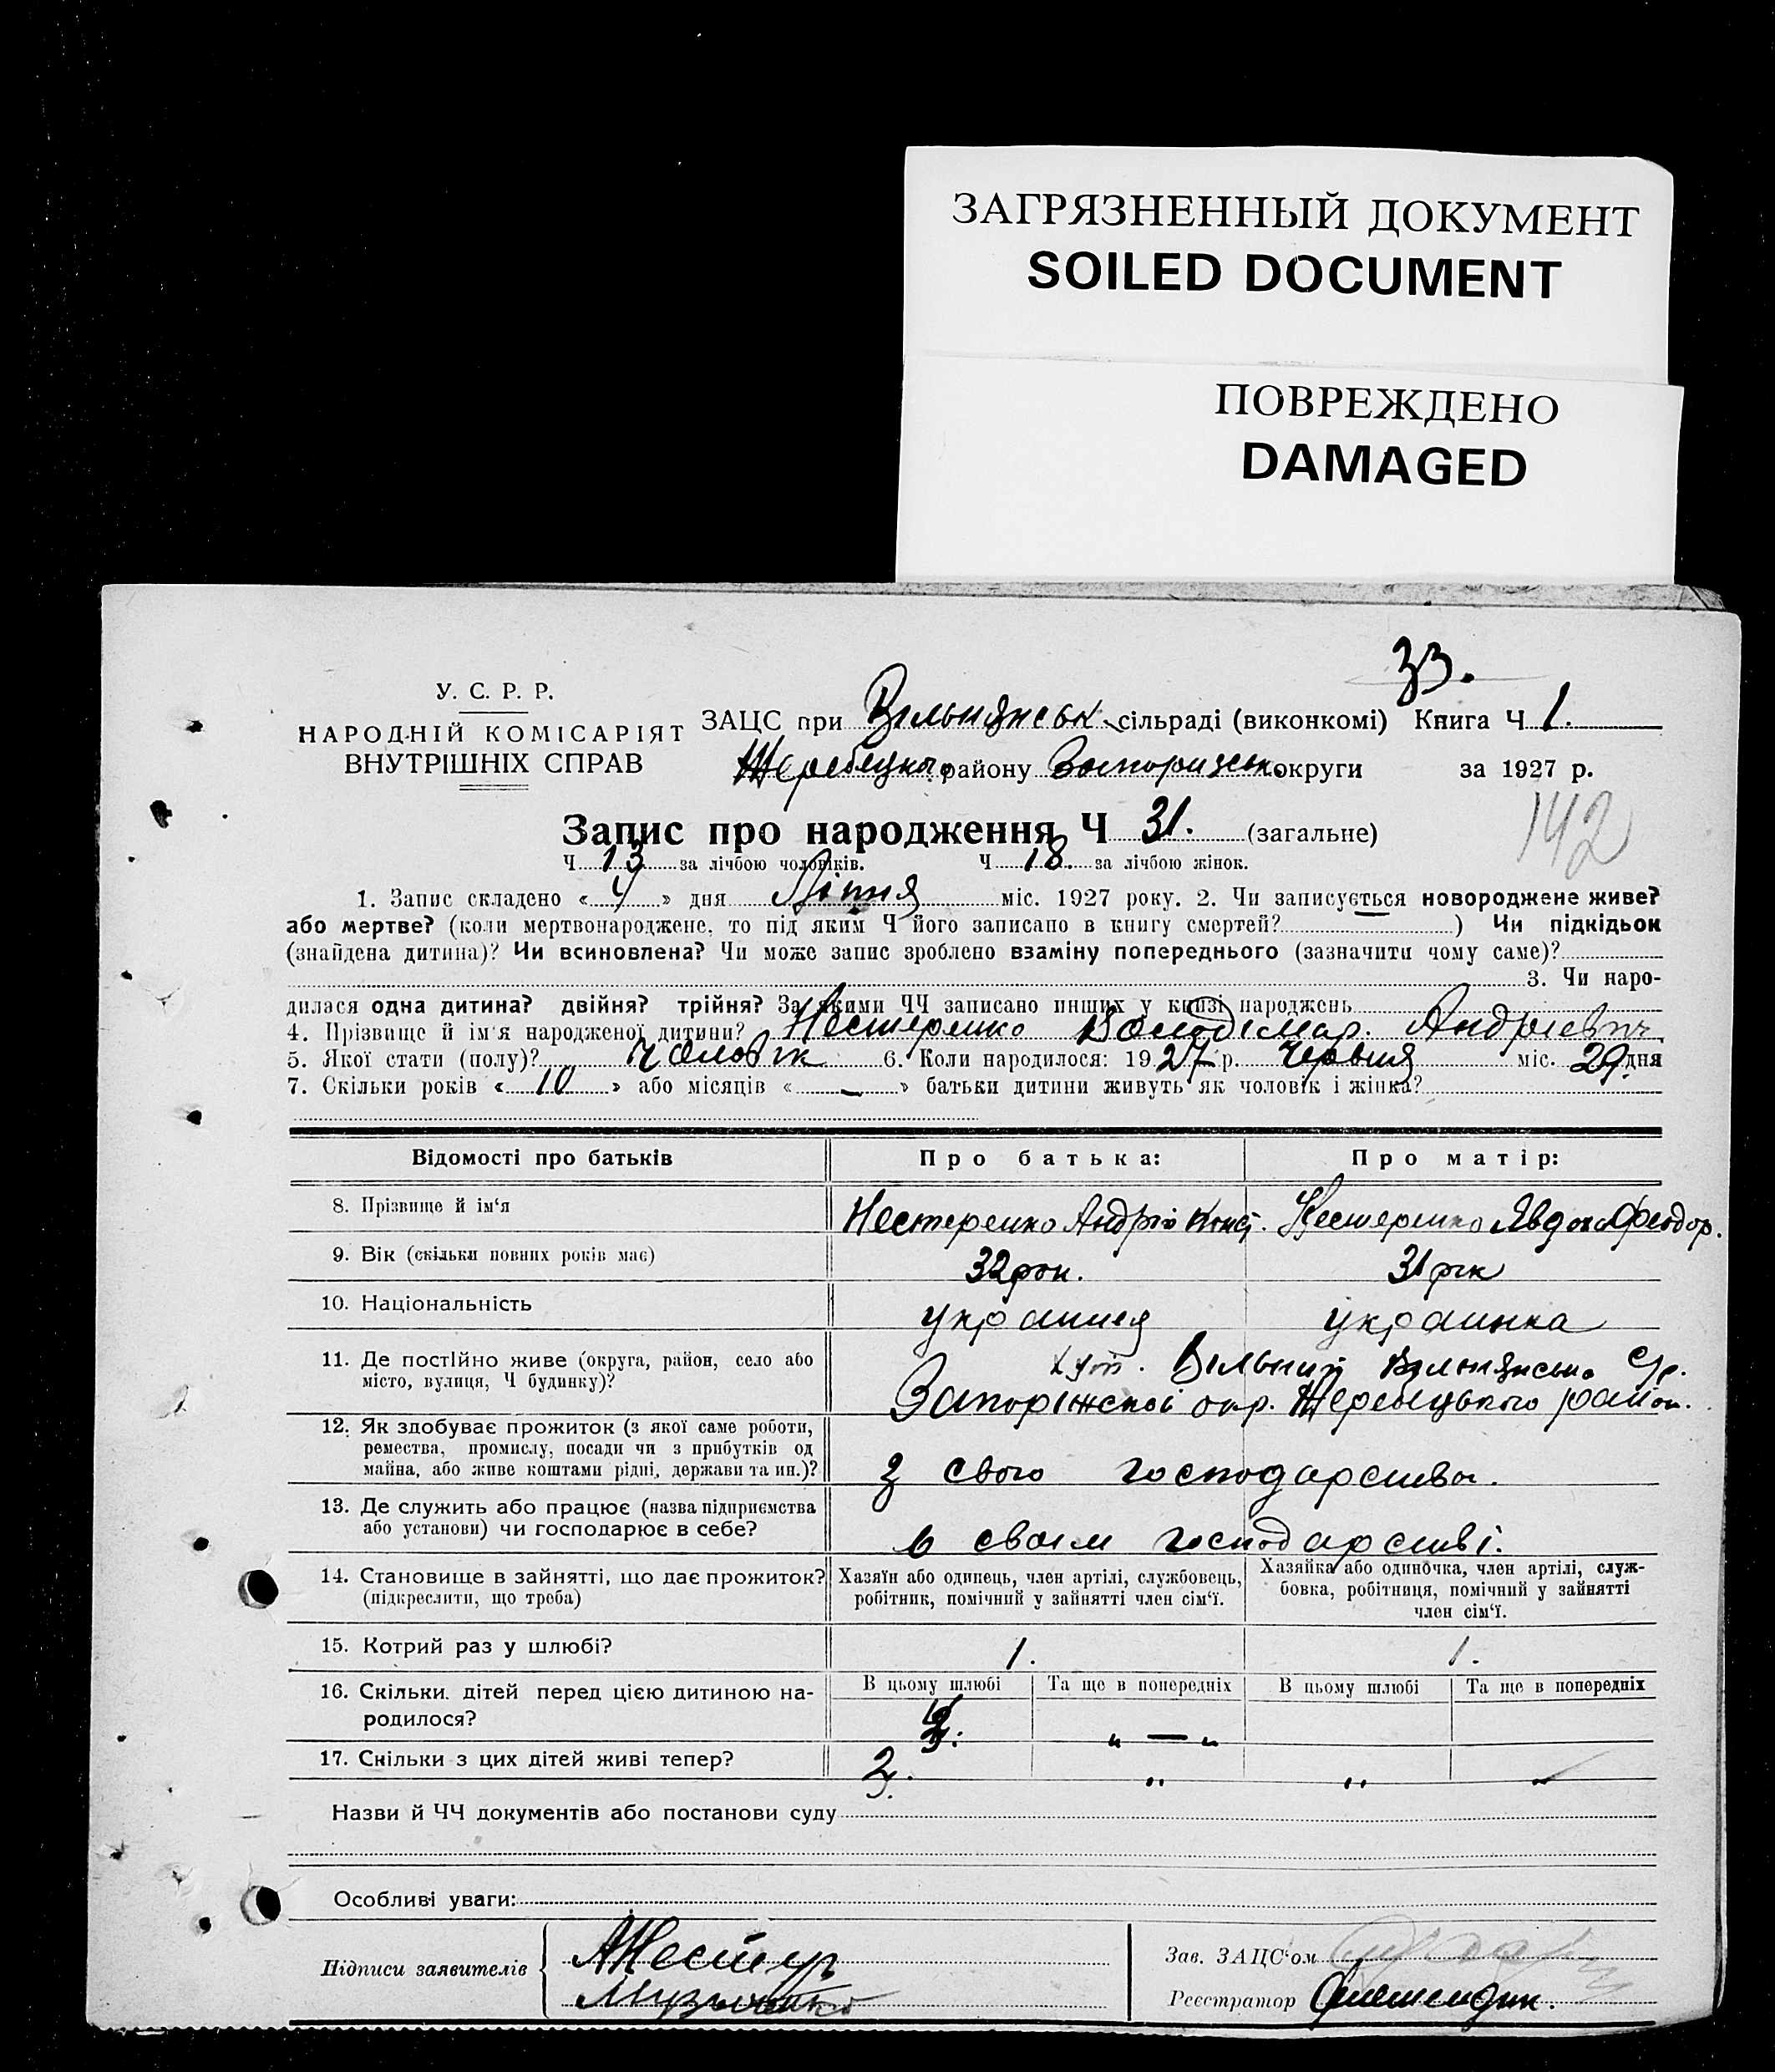 ЗАГРЯЗНЕННЫЙ ДОКУМЕНТ
SOILED DOCUMENT
ПОВРЕЖДЕНО
DAMAGED
33.
У. С. Р. Р.
НАРОДНІЙ КОМІСАРІЯТ
ВНУТРІШНІХ СПРАВ
ЗАЦС при Вільнянськ. сільраді (виконкомі) Книга Ч 1.
Жеребецького району Запорізськ. округи за 1927 р.
142
Запис про народження Ч 31. (загальне)
Ч 13 за лічбою чоловіків. Ч 18. за лічбою жінок.
1. Запис складено « 4 » дня Літня міс. 1927 року. 2. Чи записується новороджене живе?
або мертве? (коли мертвонароджене, то під яким Ч його записано в книгу смертей? — ) Чи підкідьок
(знайдена дитина)? Чи всиновлена? Чи може запис зроблено взаміну попереднього (зазначити чому саме)?
3. Чи наро-
дилася одна дитина? двійня? трійня? За якими ЧЧ записано инших у книзі народжень
4. Прізвище й ім'я народженої дитини? Нестеренко Володімар. Андріевич
5. Якої стати (полу)? Чоловік 6. Коли народилося: 1927 р. Червня міс. 29. дня
7. Скільки років « 10 » або місяців « — » батьки дитини живуть як чоловік і жінка?
Відомості про батьків Про батька: Про матір:
8. Прізвище й ім'я Нестеренко Андрій Конст. Нестеренко Явдоха Феодор.
9. Вік (скільки повних років має) 32 рок. 31 рік
10. Національність украинец украинка
11. Де постійно живе (округа, район, село або хут. Вільний Вільнянська с/р.
місто, вулиця, Ч будинку)? Запоріжскої окр. Жеребецького район.
12. Як здобуває прожиток (з якої саме роботи,
ремества, промислу, посади чи з прибутків од
майна, або живе коштами рідні, держави та ин.)? з свого господарства.
13. Де служить або працює (назва підприємства
або установи) чи господарює в себе? в своїм господарстві.
14. Становище в зайнятті, що дає прожиток? Хазяїн або одинець, член артілі, службовець, Хазяйка або одиночка, член артілі, служ-
(підкреслити, що треба) робітник, помічний у зайнятті член сім'ї. бовка, робітниця, помічний у зайнятті
член сім'ї.
15. Котрий раз у шлюбі? 1. 1.
16. Скільки дітей перед цією дитиною на- В цьому шлюбі Та ще в попередніх В цьому шлюбі Та ще в попередніх
родилося? „ — „
17. Скільки з цих дітей живі тепер? 2. „ „
Назви й ЧЧ документів або постанови суду
Особливі уваги:
Підписи заявителів АНестер
Зав. ЗАЦС'ом
Реєстратор